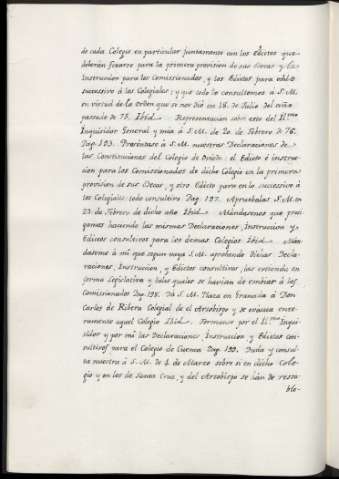 de cada Colegio en particular juntamente con los Edictos que
deberán fixarse para la primera provision de sus Becas y la
Instruccion para los Comisionados, y los Edictos para
successivo á las Colegialas; y que todo lo consultemos á S. M.
en virtud de la Orden que se nos dió en 18. de Julio del año
passado de 75. Ibid. Representacion sobre esto del Il.mo
Inquisidor General y mia á S. M. de 20. de Febrero de 76.
Pag. 193. Presentase á S. M. nuestras Declaraciones de
las Constituciones del Colegio de Oviedo; el Edicto é instruc-
cion para los Comissionados de dicho Colegio en la primera
provision de sus Becas, y otro Edicto para en lo successivo á
los Colegiales todo consultivo Pag. 197. Apruebalas S. M. en
23. de Febrero de dicho año Ibid. Mandasenos que prosi-
gamos haciendo las mismas Declaraciones, Instruccion y
Edictos consultivos para los demas Colegios Ibid. Man-
daseme á mi que segun vaya S. M. aprobando dichas Decla-
raciones, Instruccion, y Edictos consultivos, las extienda en
forma Legislativa y tales quales se havian de embiar á los
Comissionados Pag. 198. Dá S. M. Plaza en Granada á Don
Carlos de Ribera Colegial de el Arzobispo y se evacua ente-
ramente aquel Colegio Ibid. Formanse por el Il.mo Inqui-
sidor y por mi las Declaraciones Instruccion y Edictos con-
sultivos para el Colegio de Cuenca Pag. 199. Duda y consul-
ta nuestra á S. M. de 4. de Marzo sobre si en dicho Cole-
gio y en los de Santa Cruz, y del Arzobispo se han de resta-
ble-